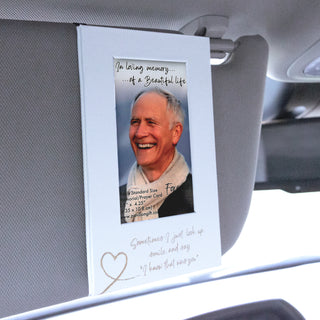 In loving memory...
...of a Beautiful life
For
Standard Size
Memorial/Prayer Card
" x 4.25"
Sometimes I just look up
smile and say,
"I know that was you"